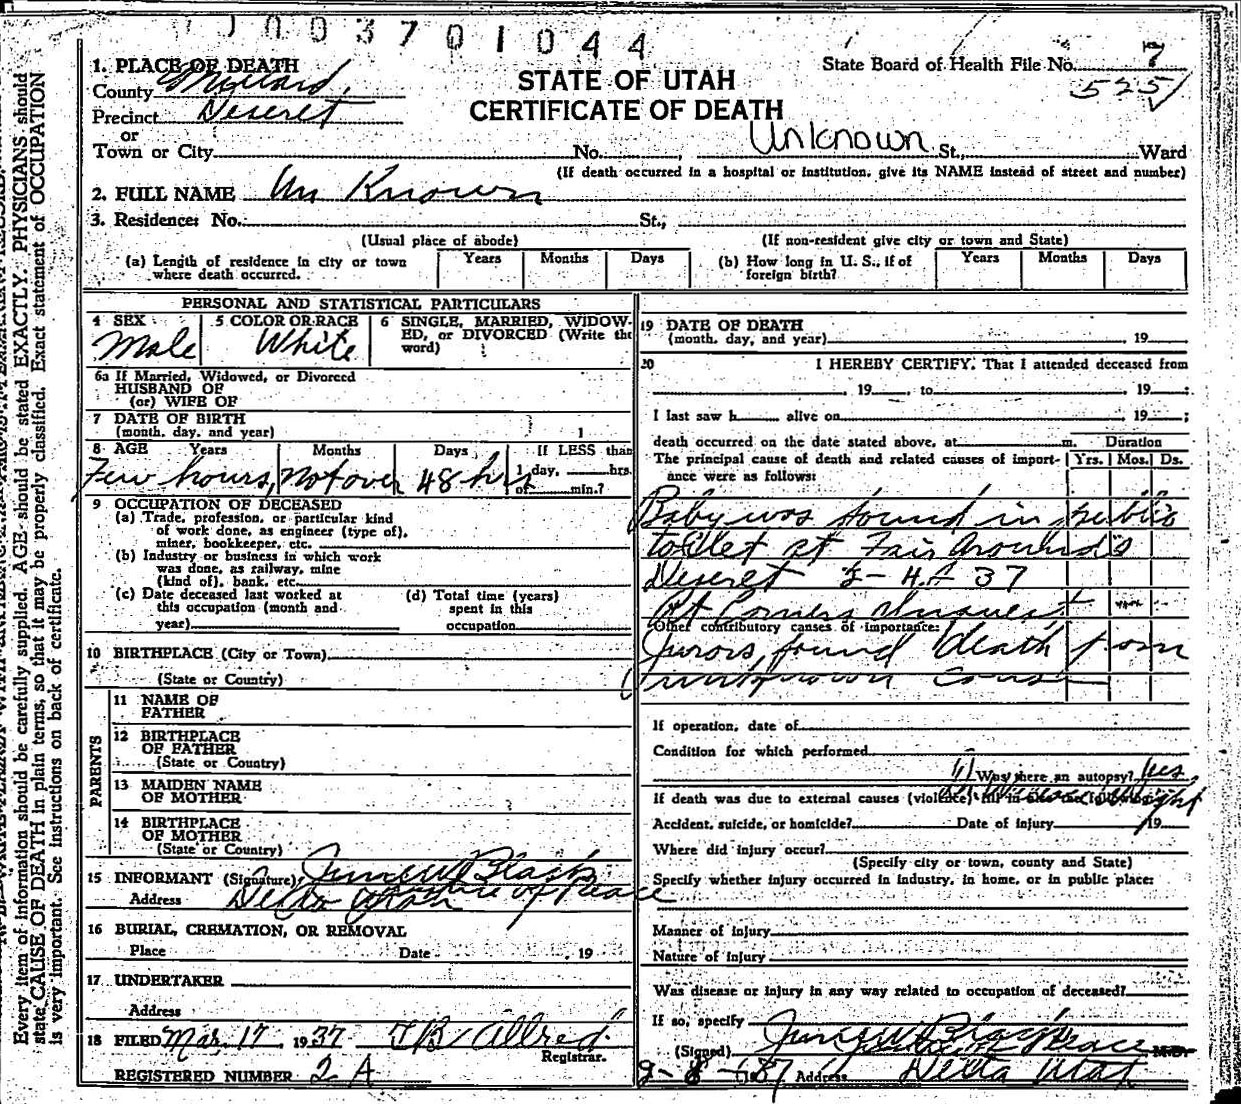 J 0 0 3 7 0 1 0 4 4
1. PLACE OF DEATH
County Millard,
Precinct Deseret
or
Town or City No. , Unknown St., Ward
STATE OF UTAH
CERTIFICATE OF DEATH
State Board of Health File No. 7
525
(If death occurred in a hospital or institution, give its NAME instead of street and number)
2. FULL NAME Un Known
3. Residence: No. St.,
(Usual place of abode) (If non-resident give city or town and State)
(a) Length of residence in city or town where death occurred. Years Months Days
(b) How long in U. S., if of foreign birth? Years Months Days
PERSONAL AND STATISTICAL PARTICULARS
4 SEX Male
5 COLOR OR RACE White
6 SINGLE, MARRIED, WIDOW-
ED, or DIVORCED (Write the
word)
6a If Married, Widowed, or Divorced
HUSBAND OF
(or) WIFE OF
7 DATE OF BIRTH
(month, day, and year)
8 AGE Years Months Days If LESS than
1 day, hrs.
or min.?
Few hours, Not over 48 hrs
9 OCCUPATION OF DECEASED
(a) Trade, profession, or particular kind
of work done, as engineer (type of),
miner, bookkeeper, etc.
(b) Industry or business in which work
was done, as railway, mine
(kind of), bank, etc.
(c) Date deceased last worked at
this occupation (month and
year)
(d) Total time (years)
spent in this
occupation
10 BIRTHPLACE (City or Town)
(State or Country)
PARENTS
11 NAME OF
FATHER
12 BIRTHPLACE
OF FATHER
(State or Country)
13 MAIDEN NAME
OF MOTHER
14 BIRTHPLACE
OF MOTHER
(State or Country)
15 INFORMANT (Signature) Black
Address Delta Utah of Peace
16 BURIAL, CREMATION, OR REMOVAL
Place Date , 19
17 UNDERTAKER
Address
18 FILED Mar. 17, 1937 Allred.
Registrar.
REGISTERED NUMBER 2 A
19 DATE OF DEATH
(month, day, and year) , 19
20 I HEREBY CERTIFY, That I attended deceased from
, 19 , to , 19 ;
I last saw h alive on , 19 ;
death occurred on the date stated above, at m. Duration
The principal cause of death and related causes of import-
ance were as follows: Yrs. Mos. Ds.
Baby was found in public
toilet at Fair Grounds
Deseret 37
At Corners Inquest
Other contributory causes of importance:
Jurors, found death from
unknown Cause
If operation, date of
Condition for which performed
Was there an autopsy? Yes
If death was due to external causes (violence) fill in also the following:
Accident, suicide, or homicide? Date of injury , 19
Where did injury occur?
(Specify city or town, county and State)
Specify whether injury occurred in industry, in home, or in public place:
Manner of injury
Nature of injury
Was disease or injury in any way related to occupation of deceased?
If so, specify
(Signed) Black
Peace M. D.
37 Address Delta Utah
Every item of information should be carefully supplied. AGE should be stated EXACTLY. PHYSICIANS should
state CAUSE OF DEATH in plain terms, so that it may be properly classified. Exact statement of OCCUPATION
is very important. See instructions on back of certificate.